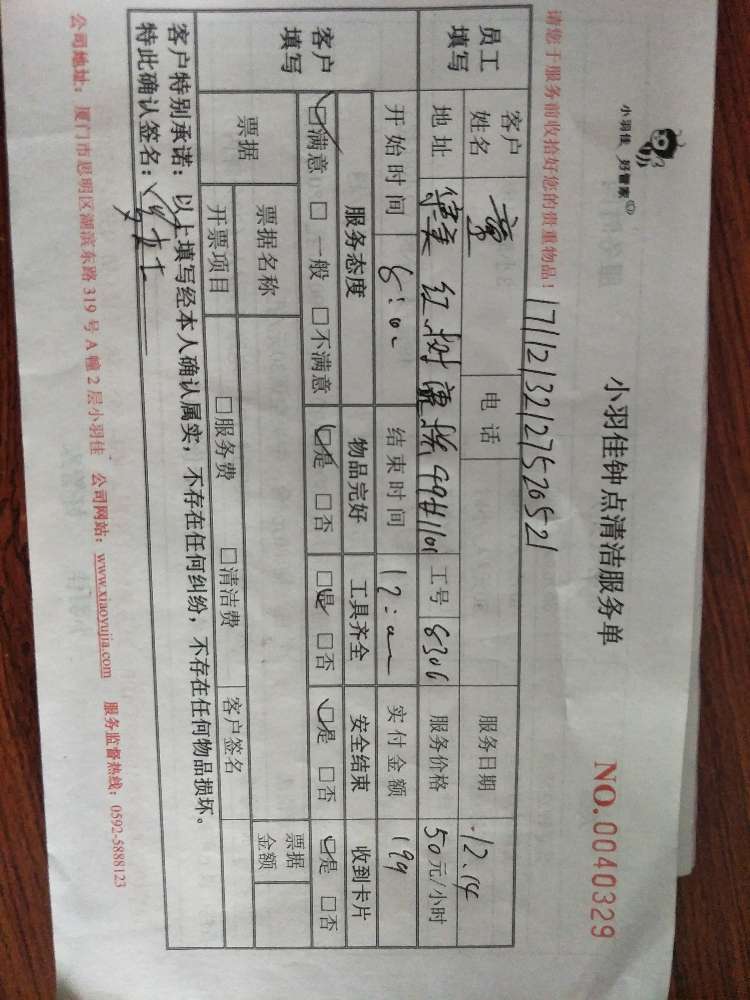 小羽佳 好管家
小羽佳钟点清洁服务单
NO.0040329
请您于服务前收拾好您的贵重物品！
17112132127520521
员工填写 客户姓名 章 电话 服务日期 12.14
地址 红树 工号 8306 服务价格 50元/小时
开始时间 8:00 结束时间 12:00 实付金额 199
客户填写 服务态度 物品完好 工具齐全 安全结束 收到卡片
☑满意 □一般 □不满意 ☑是 □否 ☑是 □否 ☑是 □否 ☑是 □否
票据 票据名称 票据金额
开票项目 □服务费 □清洁费 客户签名
客户特别承诺：以上填写经本人确认属实，不存在任何纠纷，不存在任何物品损坏。
特此确认签名：
公司地址：厦门市思明区湖滨东路319号A幢2层小羽佳 公司网站：www.xiaoyujia.com 服务监督热线：0592-5888123